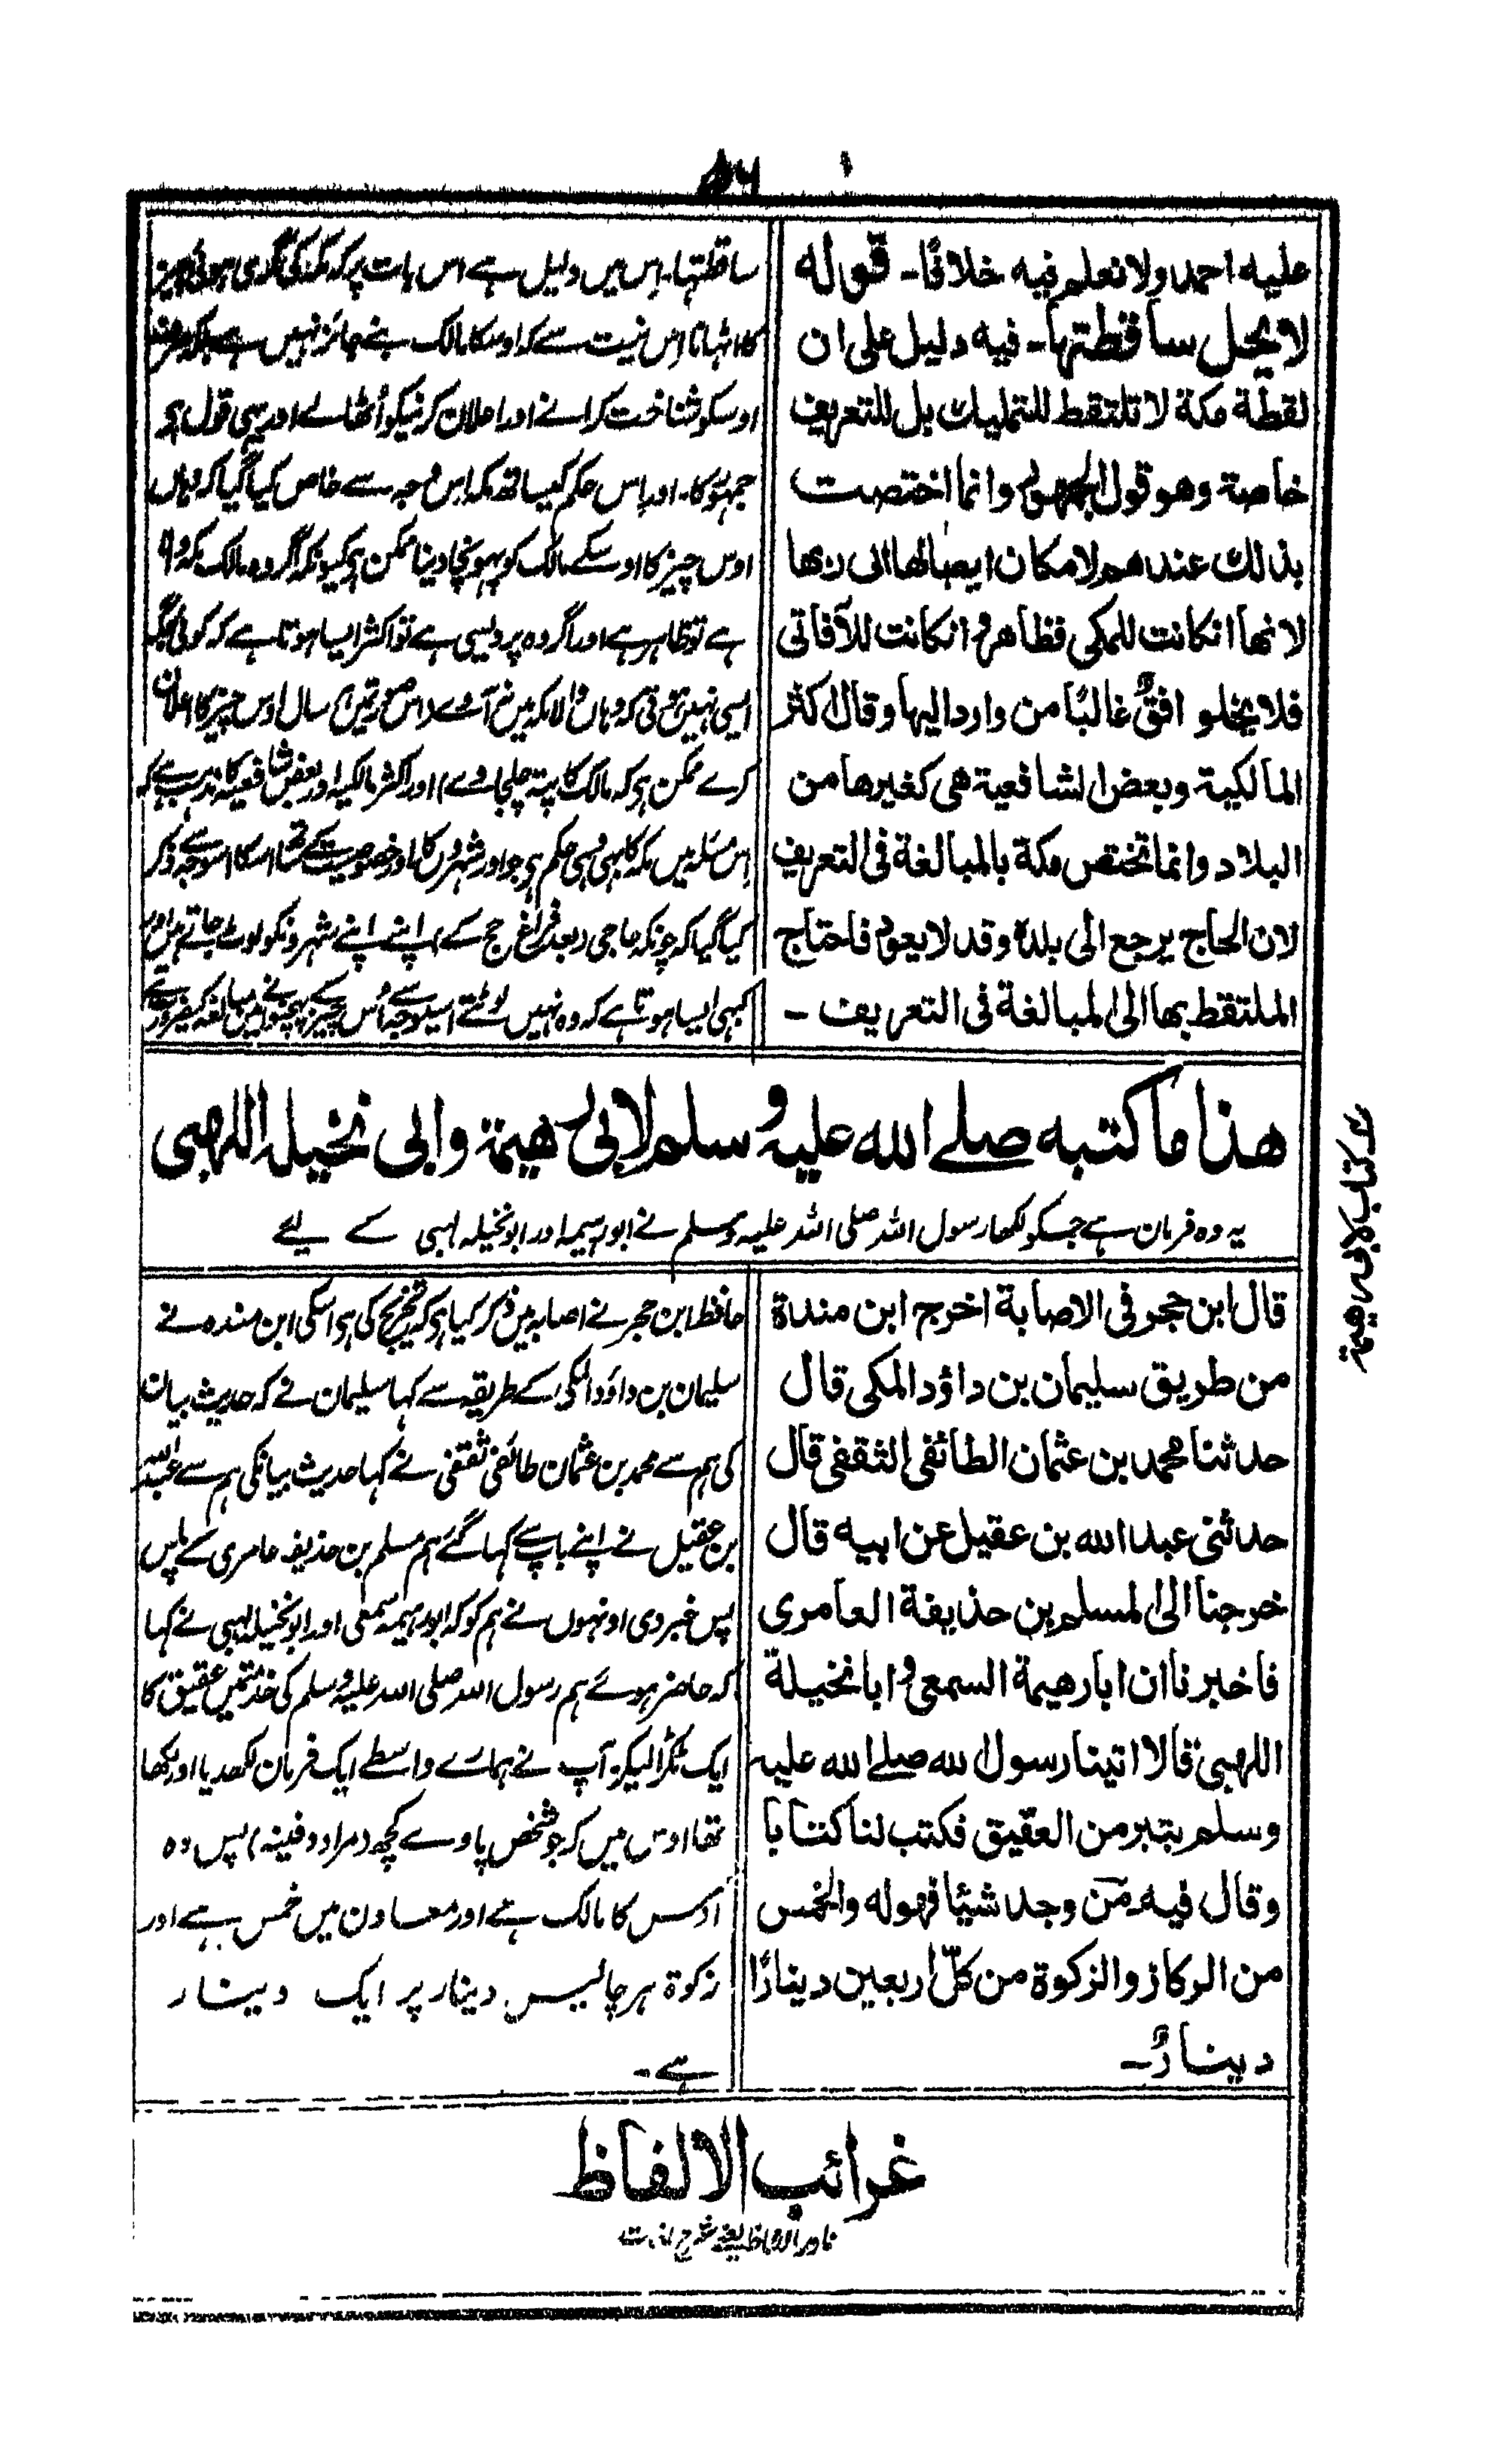 عليه احمد ولا نعلم فيه خلافًا ـ قوله
لا يحل ساقطتها ـ فيه دليل على ان
لقطة مكة لا تلتقط للتمليك بل للتعريف
خاصة وهو قول الجمهور وانما اختصت
بذلك عندهم لامكان ايصالها الى ربها
لانها انكانت للمكى فظاهر وانكانت للآفاقى
فلا يخلو افق غالبًا من وارد اليها وقال اكثر
المالكية وبعض الشافعية هى كغيرها من
البلاد وانما تختص مكة بالمبالغة فى التعريف
لان الحاج يرجع الى بلدة وقد لا يعود فاحتاج
الملتقط بها الى المبالغة فى التعريف ـ
ساقطتها۔ اِس میں دلیل ہے اس بات پر کہ مکہ کی گری ہوئی چیز
کا اٹہانا اِس نیت سے کہ اوسکا مالک بنے جائز نہیں ہے بلکہ صرف
اوسکو شناخت کرانے اور اعلان کرنیکو اُٹھالے اور یہی قول ہے
جمہور کا۔ اور اِس حکم کیساتھ مکہ اس وجہ سے خاص کیا گیا کہ وہاں
اوس چیز کا اوسکے مالک کو پہونچا دینا ممکن ہی کیونکہ اگر وہ مالک مکہ والا
ہے تو ظاہر ہے اور اگر وہ پردیسی ہے تو اکثر ایسا ہوتا ہے کہ کوئی جگہ
ایسی نہیں ہوتی کہ وہاں والا مکہ میں نہ آوے (اس صورتمیں) سال اوس چیز کا اعلان
کرے ممکن ہی کہ مالک کا پتہ چلجاوے) اور اکثر مالکیہ اور بعض شافعیہ کا مذہب ہے کہ
اِس مسئلہ میں مکہ کا بہی وہی حکم ہی جو اور شہروں کا، اور خصوصیت کے ساتھ اسکا اسوجہ سے ذکر
کیا گیا کہ چونکہ حاجی (بعد فراغ حج کے) اپنے اپنے شہرونکو لوٹ جاتے ہیں اور
کبہی ایسا ہوتا ہے کہ وہ نہیں لوٹتے اسیلوجہ سے اُس چیز کے پہچنوانے میں مبالغہ کیضرورت ہے
هذا ما كتبه صلے الله عليه وسلم لابى رهيمة وابى نخيلة اللهبى
یہ وہ فرمان ہے جسکو لکھا رسول اللہ صلی اللہ علیہ وسلم نے ابورہیمہ اور ابونخیلہ لہبی کے لیے
كتاب لابى رهيمة
قال ابن حجر فى الاصابة اخرج ابن مندة
من طريق سليمان بن داؤد المكى قال
حدثنا محمد بن عثمان الطائفى الثقفى قال
حدثنى عبد الله بن عقيل عن ابيه قال
خرجنا الى المسلم بن حذيفة العامرى
فاخبرنا ان ابا رهيمة السمعى وابا نخيلة
اللهبى قالا اتينا رسول الله صلے الله عليه
وسلم بتبر من العقيق فكتب لنا كتابا
وقال فيه من وجد شيئا فهو له والخمس
من الركاز والزكوة من كلّ اربعين دينارًا
دينارٌ ـ
حافظ ابن حجر نے اصابہ میں ذکر کیا ہی کہ تخریج کی ہی اسکی ابن مندہ نے
سلیمان بن داؤد المکی کے طریقہ سے کہا سلیمان نے کہ حدیث بیان
کی ہم سے محمد بن عثمان طائفی ثقفی نے کہا حدیث بیانکی ہم سے عبداللہ
بن عقیل نے اپنے باپ سے کہا گئے ہم مسلم بن حذیفہ عامری کے پاس
پس خبر دی اونہوں نے ہم کو کہ ابورہیمہ سمعی اور ابونخیلہ لہبی نے کہا
کہ حاضر ہوئے ہم رسول اللہ صلی اللہ علیہ وسلم کی خدمتمیں عقیق کا
ایک ٹکڑا لیکر۔ آپ نے ہمارے واسطے ایک فرمان لکھدیا اور لکھا
تھا اوس میں کہ جو شخص پاوے کچھ (مراد دفینہ) پس وہ
اُوسکا مالک ہے اور معادن میں خمس ہے اور
زکوۃ ہر چالیس دینار پر ایک دینار
ہے۔
غرائب الالفاظ
نادر الالفاظ یعنے شرح لغت